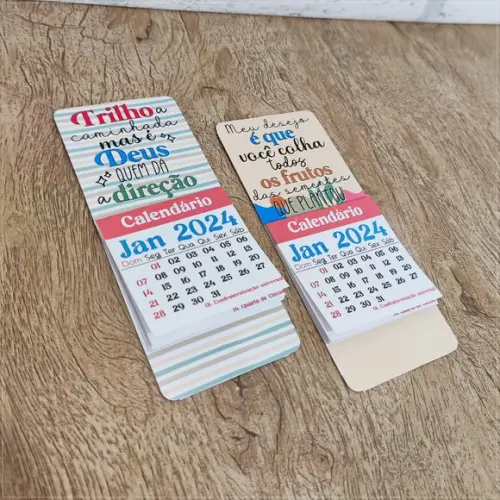 Trilho a
caminhada
mas é
Deus
QUEM DÁ
a direção
Calendário
Jan 2024
Dom Seg Ter Qua Qui Sex Sáb
01 02 03 04 05 06
07 08 09 10 11 12 13
14 15 16 17 18 19 20
21 22 23 24 25 26 27
28 29 30 31
01. Confraternização universal
Meu desejo
é que
você colha
todos
os frutos
das sementes
QUE PLANTOU
Calendário
Jan 2024
Dom Seg Ter Qua Qui Sex Sáb
01 02 03 04 05 06
07 08 09 10 11 12 13
14 15 16 17 18 19 20
21 22 23 24 25 26 27
28 29 30 31
01. Confraternização universal